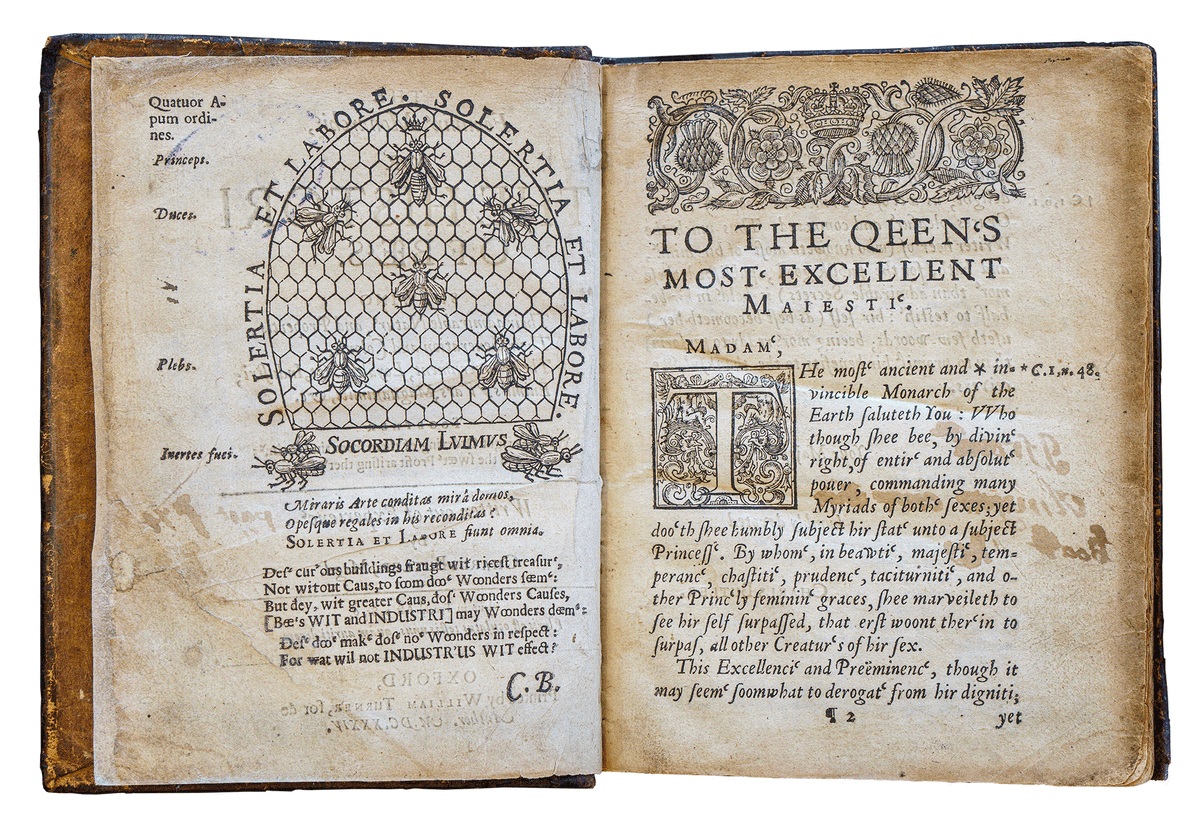 Quatuor A-
pum ordi-
nes.
Princeps.
Duces.
Plebs.
Inertes fuci.
SOLERTIA ET LABORE. SOLERTIA ET LABORE.
SOCORDIAM LVIMVS
Miraris Arte conditas mirâ domos,
Opeſque regales in his reconditas?
SOLERTIA ET LABORE fiunt omnia.
Ðeſʽ curʽous buildings fraugt wit ricest treaſurʽ,
Not witout Caus, to ſoom dooʽ Woonders ſeemʽ:
But ðey, wit greater Caus, ðoſʽ Woonders Cauſes,
[Beeʽs WIT and INDUSTRI] may Woonders deemʽ:
Ðeſʽ dooʽ makʽ ðoſʽ noʽ Woonders in reſpect:
For wat wil not INDUSTRʽUS WIT effect?
C. B.
TO THE QEENʽS
MOSTʽ EXCELLENT
MAIESTIʽ.
MADAMʽ,
THe moſtʽ ancient and * in- * C. 1, n. 48.
vincible Monarch of the
Earth ſaluteth You: VVho
though ſhee bee, by divinʽ
right, of entirʽ and abſolutʽ
power, commanding many
Myriads of bothʽ ſexes; yet
dooʽth ſhee humbly ſubject hir ſtatʽ unto a ſubject
Princeſſʽ. By whomʽ, in beawtiʽ, majeſtiʽ, tem-
perancʽ, chaſtitiʽ, prudencʽ, taciturnitiʽ, and o-
ther Princʽly femininʽ graces, ſhee marveileth to
ſee hir ſelf ſurpaſſed, that erſt woont therʽin to
ſurpaſ, all other Creaturʽs of hir ſex.
This Excellenciʽ and Preëminencʽ, though it
may ſeemʽ ſoomwhat to derogatʽ from hir digniti;
¶ 2 yet